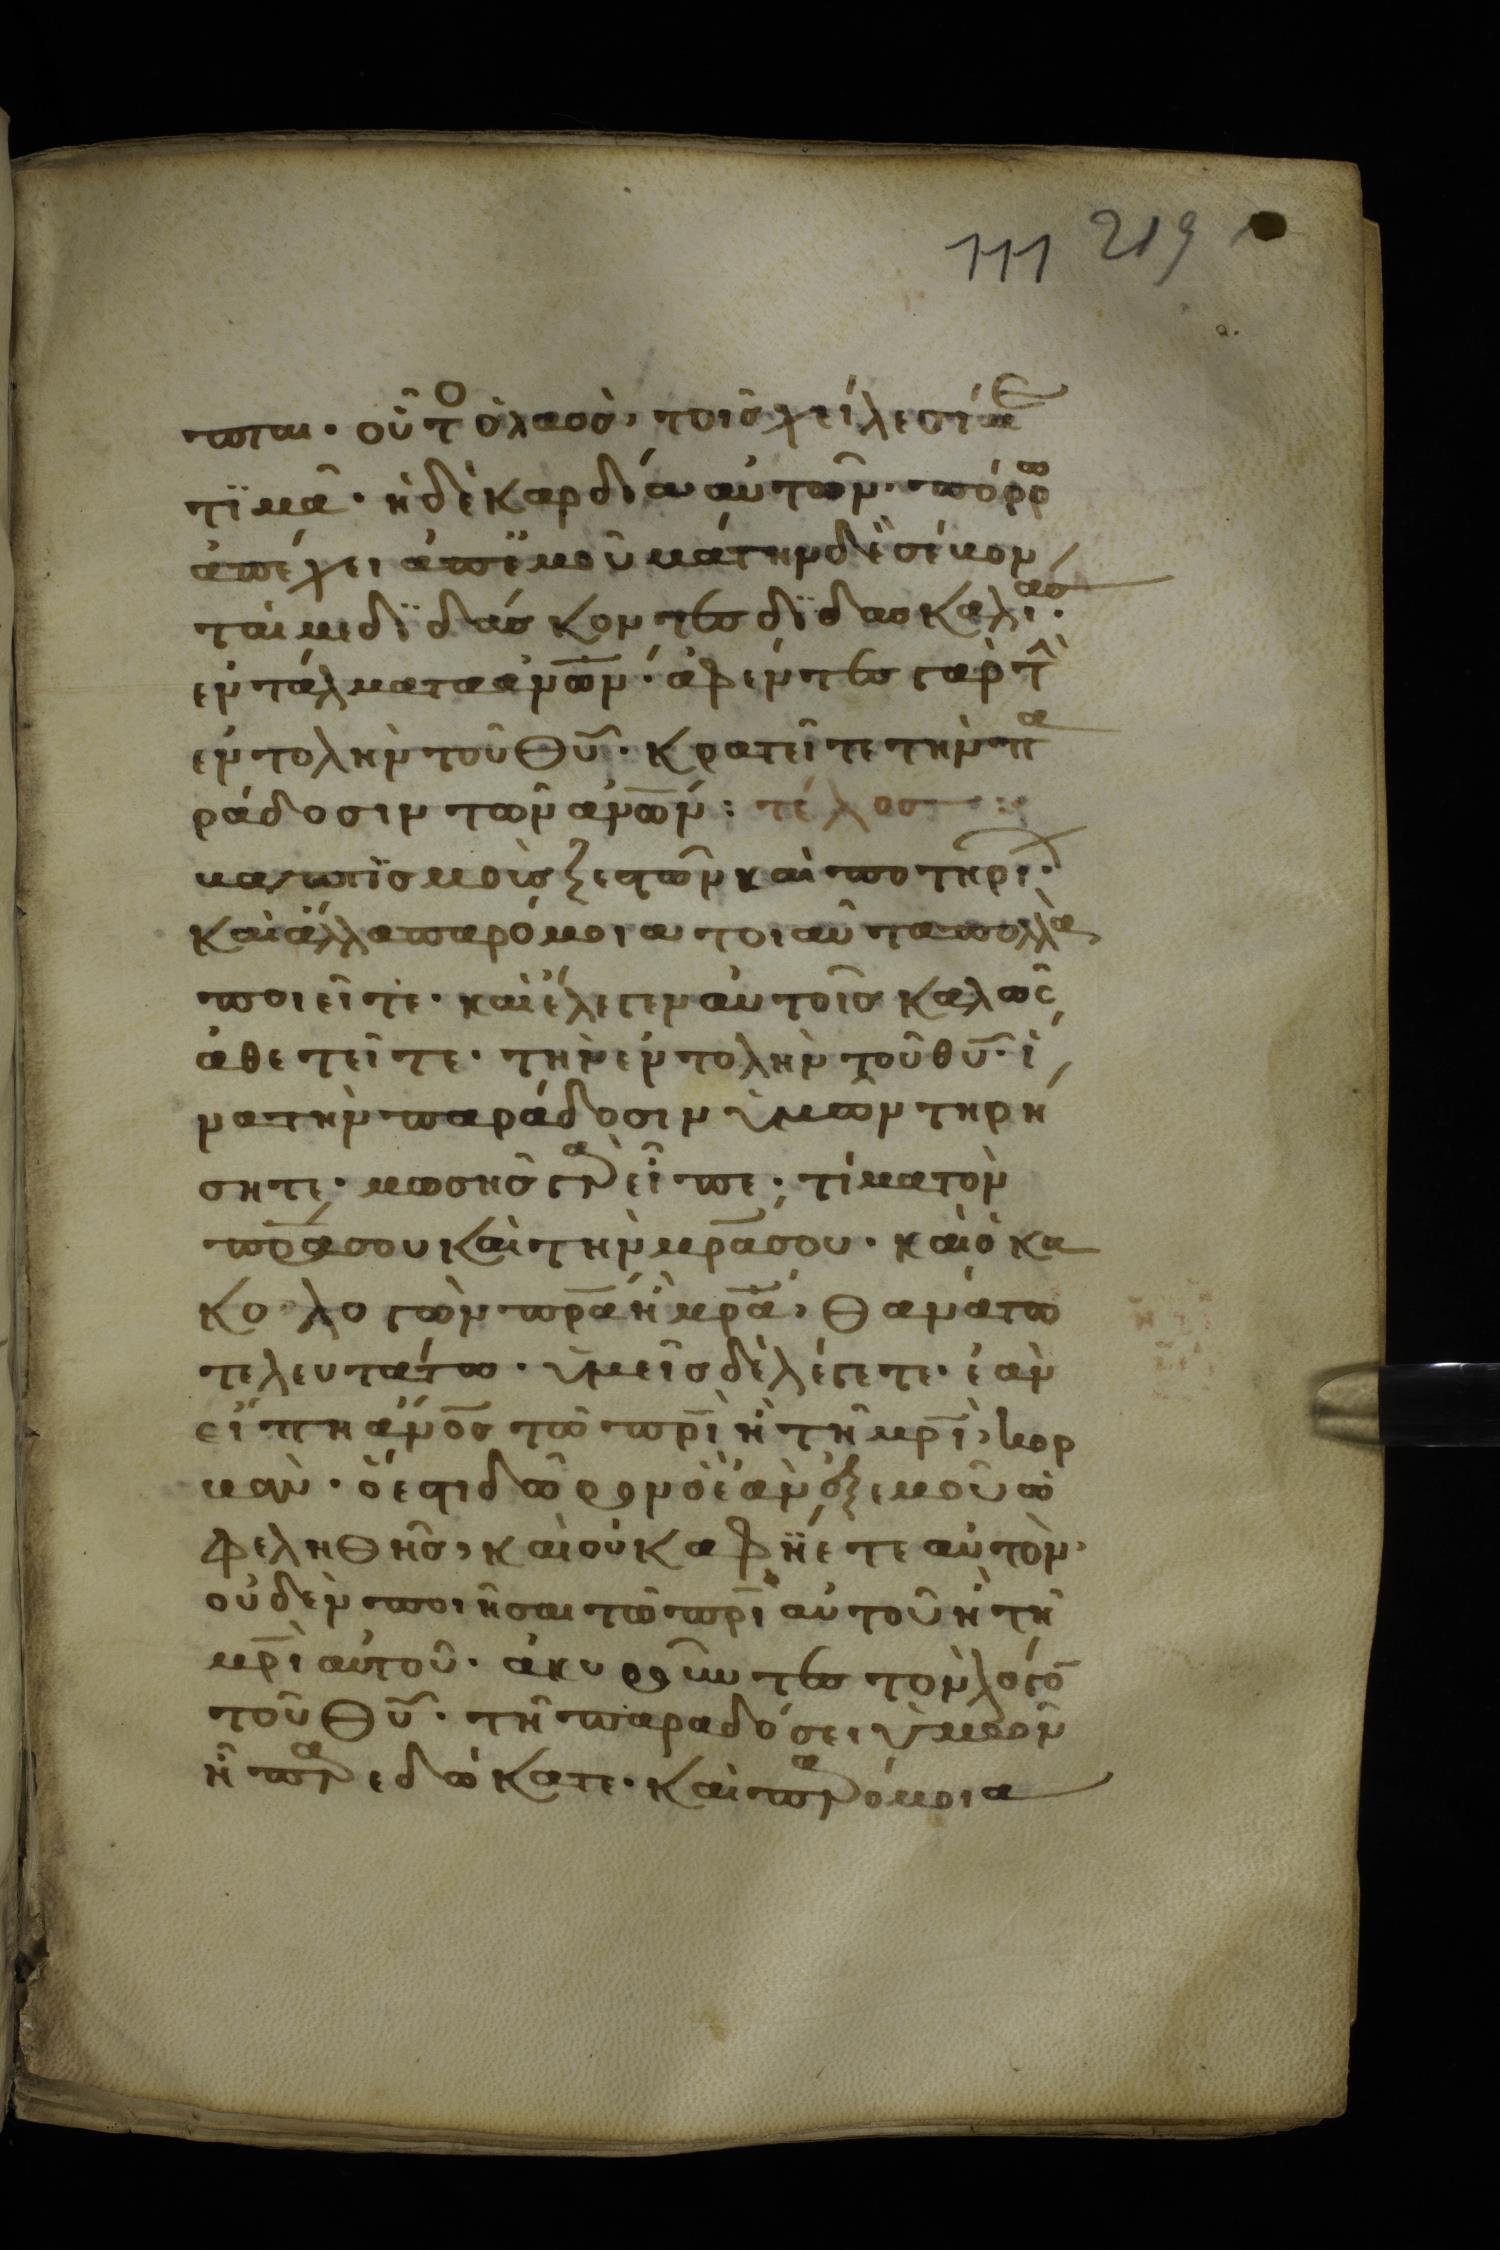 111 219
πται· οὗτο ὁ λαὸς, τοῖς χείλεσί με
τϊμᾶ· ἡ δὲ καρδία αὐτῶν· πόρρω
ἀπέχει ἀπ' ἐμοῦ μάτην δὲ σέβον
ταί με δϊδάσκοντες δϊδασκαλίας·
ἐντάλματα ἀνων· ἀφέντες γὰρ τὴ
ἐντολὴν τοῦ θυ· κρατεῖτε τὴν πα
ράδοσιν τῶν ἀνων: τέλος
βαπτϊσμοὺς ξεστῶν καὶ ποτηρί·
καὶ ἄλλα παρόμοια τοιαῦτα πολλὰ
ποιεῖτε· καὶ ἔλεγεν αὐτοῖς καλῶς
ἀθετεῖτε· τὴν ἐντολὴν τοῦ θυ· ἵ
να τὴν παράδοσιν ὑμῶν τηρή
σητε· μωσῆς γὰρ εἶπε· τίμα τὸν
πρα σου καὶ τὴν μρα σου· καὶ ὁ κα
κολογῶν πρα ἢ μρα, θανάτω
τελευτάτω· ὑμεῖς δὲ λέγετε· ἐὰν
εἴπη ἄνος τῶ πρι ἢ τῆ μρι, κορ
βαν· ὅ ἐστι δῶρον ὃ ἐὰν ἐξ ἐμοῦ ὠ
φεληθῆς, καὶ οὐκ ἀφΐετε αὐτὸν·
οὐδὲν ποιῆσαι τῶ πρι αὐτοῦ ἢ τῆ
μρι αὐτοῦ· ἀκυροῦντες τὸν λόγο
τοῦ θυ· τῆ παραδόσει ὑμῶν
ἧ παρεδώκατε· καὶ παρόμοια